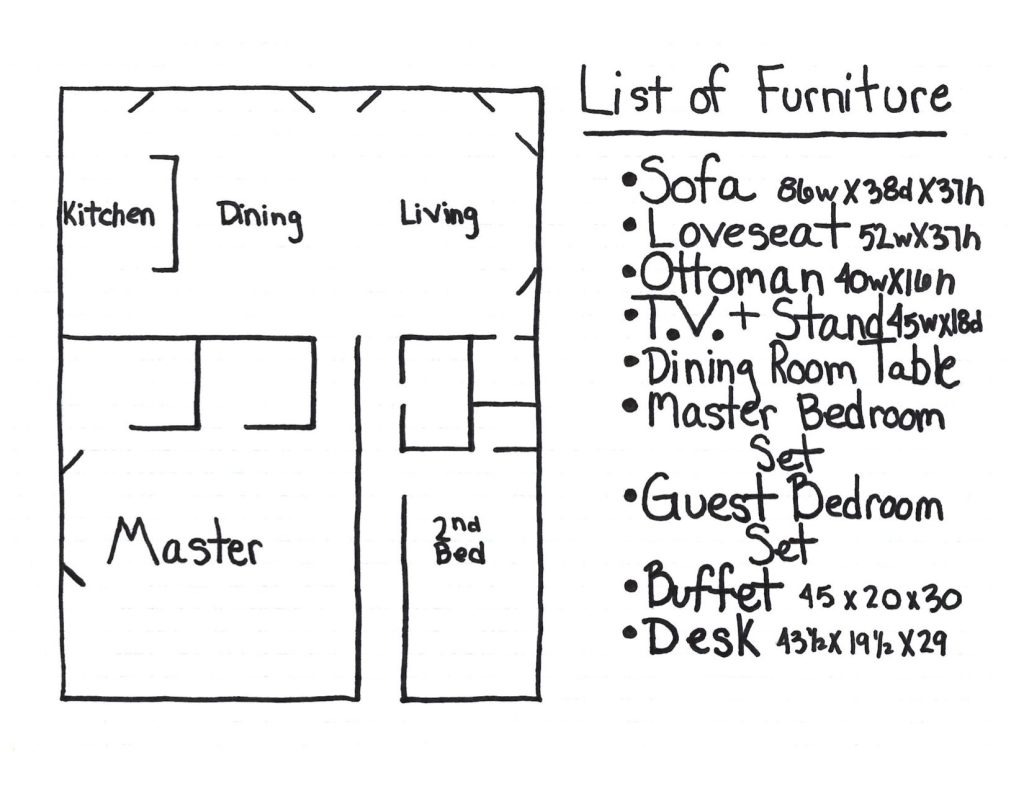 List of Furniture
Kitchen
Dining
Living
Master
2nd
Bed
•Sofa 86w X 38d X 37h
•Loveseat 52w X 37h
•Ottoman 40w X 16h
•T.V. + Stand 45w X 18d
•Dining Room Table
•Master Bedroom
Set
•Guest Bedroom
Set
•Buffet 45 x 20 x 30
•Desk 43½ X 19½ X 29